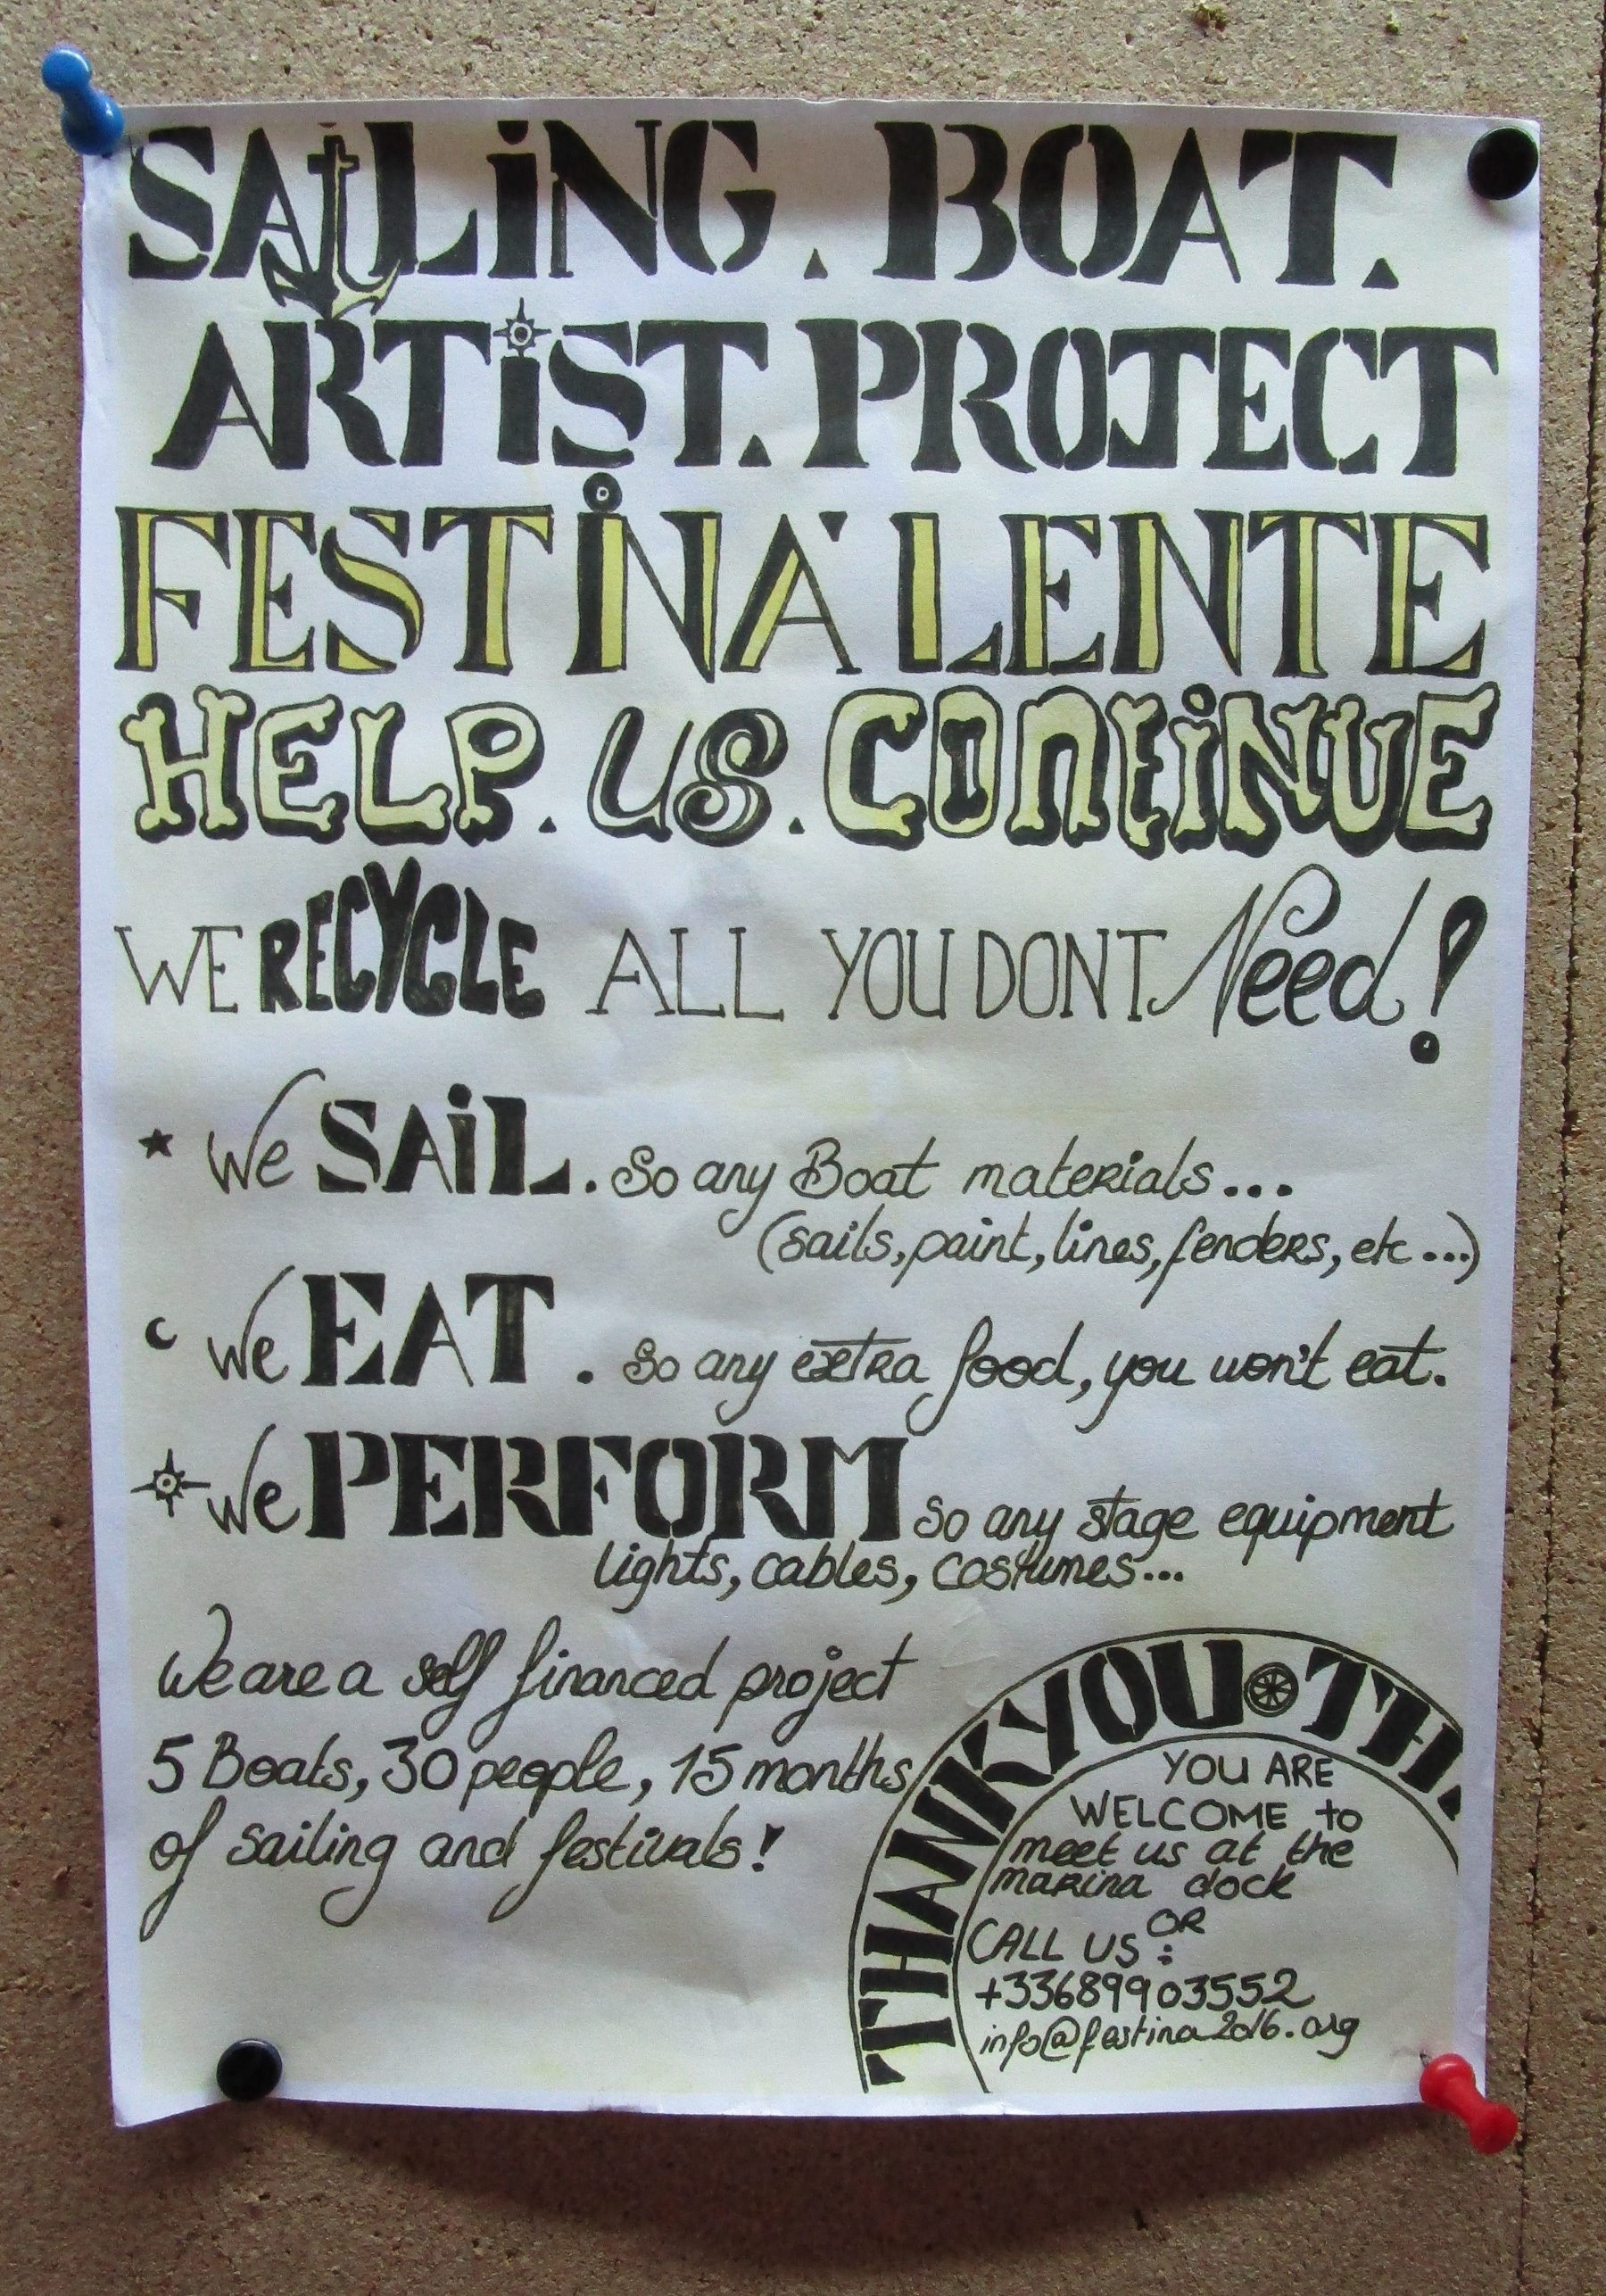 SAiLiNG. BOAT.
ARTiST. PROJECT
FESTiNA LENTE
HELP. US. CONTiNUE
WE RECYCLE ALL YOU DONT Need!
We SAiL. So any Boat materials...
(sails, paint, lines, fenders, etc...)
We EAT. So any extra food, you won't eat.
We PERFORM so any stage equipment
lights, cables, costumes...
We are a self financed project
5 Boats, 30 people, 15 months
of sailing and festivals!
THANK YOU THA
YOU ARE
WELCOME to
meet us at the
marina dock
OR
CALL US:
+33689903552
info@festina2016.org